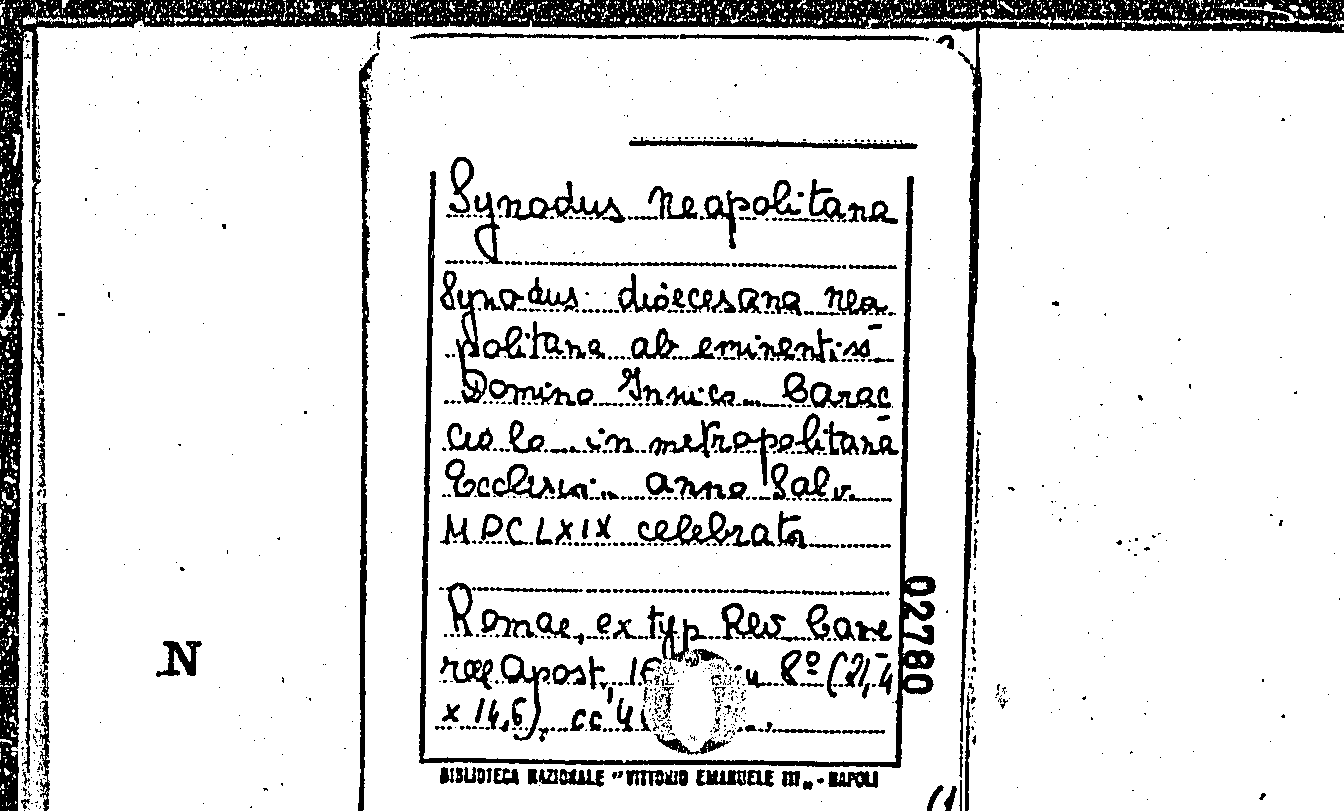 Synodus Neapolitana
Synodus dioecesana nea
politana ab eminentiss
Domino Innico Carac
ciolo in metropolitana
Ecclesia anno Salv.
MDCLXIX celebrata
Romae, ex typ Rev Came
rae Apost, in 8º (21,4
x 14,6). cc
BIBLIOTECA NAZIONALE "VITTORIO EMANUELE III„ - NAPOLI
02780
N